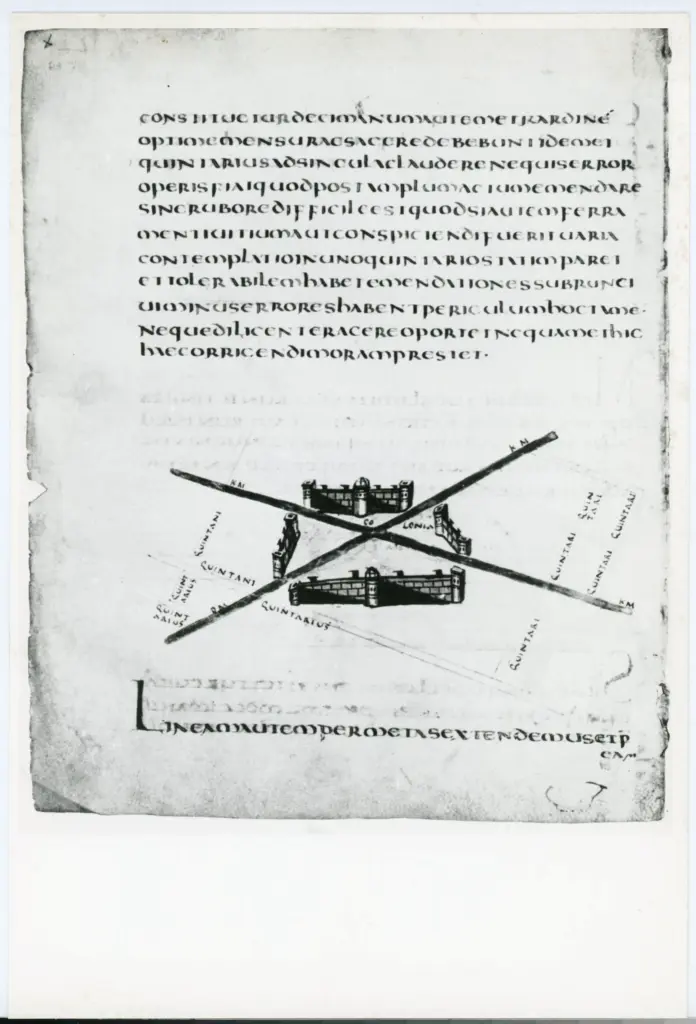 CONSTITUETURDECIMANUMAUTEMETKARDINE
OPTIMEMENSURAESAGEREDEBEBUNTIDEMET
QUINTARIUSADSINGULACLAUDERENEQUISERROR
OPERISFIATQUODPOSTAMPLUMACTUMEMENDARE
SINERUBOREDIFFICILEESTQUODSIAUTEMFERRA
MENTIUITIUMAUTCONSPICIENDIFUERITUARIA
CONTEMPLATIOINUNOQUINTARIOSTATIMPARET
ETTOLERABILEMHABETEMENDATIONESSUBRUNCI
UIMINUSERRORESHABENTPERICULUMHOCTAME·
NEQUEDILIGENTERAGEREOPORTETNEQUAMETHIC
HAECORRIGENDIMORAMPRESTET·
KM
KM
COLONIA
QUINTANI
QUINTANI
QUINTARIUS
QUINTARIUS
QUINTARIUS
QUINTARI
QUINTARI
QUINTARI
QUINTARI
QUINTARI
KM
LINEAMAUTEMPERMETASEXTENDEMUSETP
EAM